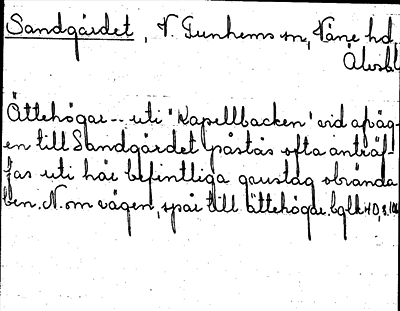 Sandgärdet, V. Gunhems sn, Väne hd,
Älvsbl
Ättehögar -- uti "Kapellbacken" vid afväg-
en till Sandgärdet påstås ofta anträf-
fas uti här befintliga grustag obrända
ben. N. om vägen, spår till ättehögar.